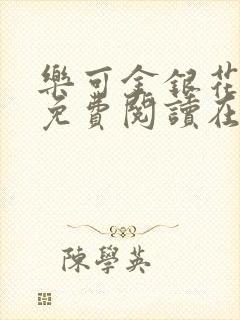 樂可金銀花
免費閱讀在
陳學英